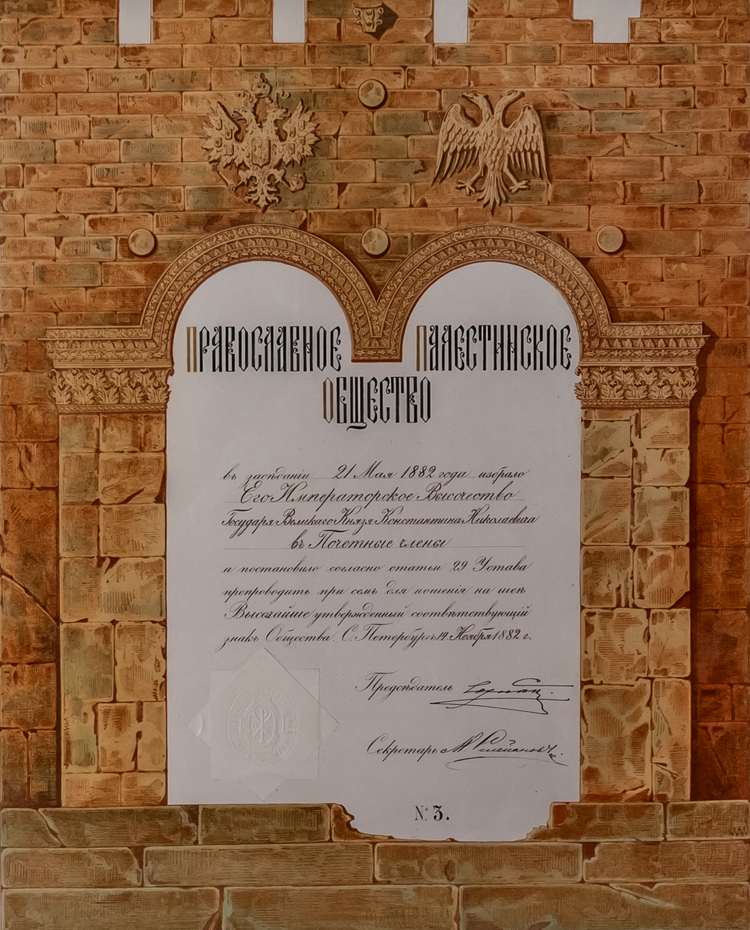 ПРАВОСЛАВНОЕ ПАЛЕСТИНСКОЕ
ОБЩЕСТВО
въ засѣданіи 21 Мая 1882 года избрало
Его Императорское Высочество
Государя Великаго Князя Константина Николаевича
въ Почетные члены
и постановило согласно статьи 29 Устава
препроводить при семъ для ношенія на шеѣ
Высочайше утвержденный соотвѣтствующій
знакъ Общества. С. Петербургъ 14 Ноября 1882 г.
Предсѣдатель
Секретарь
№ 3.